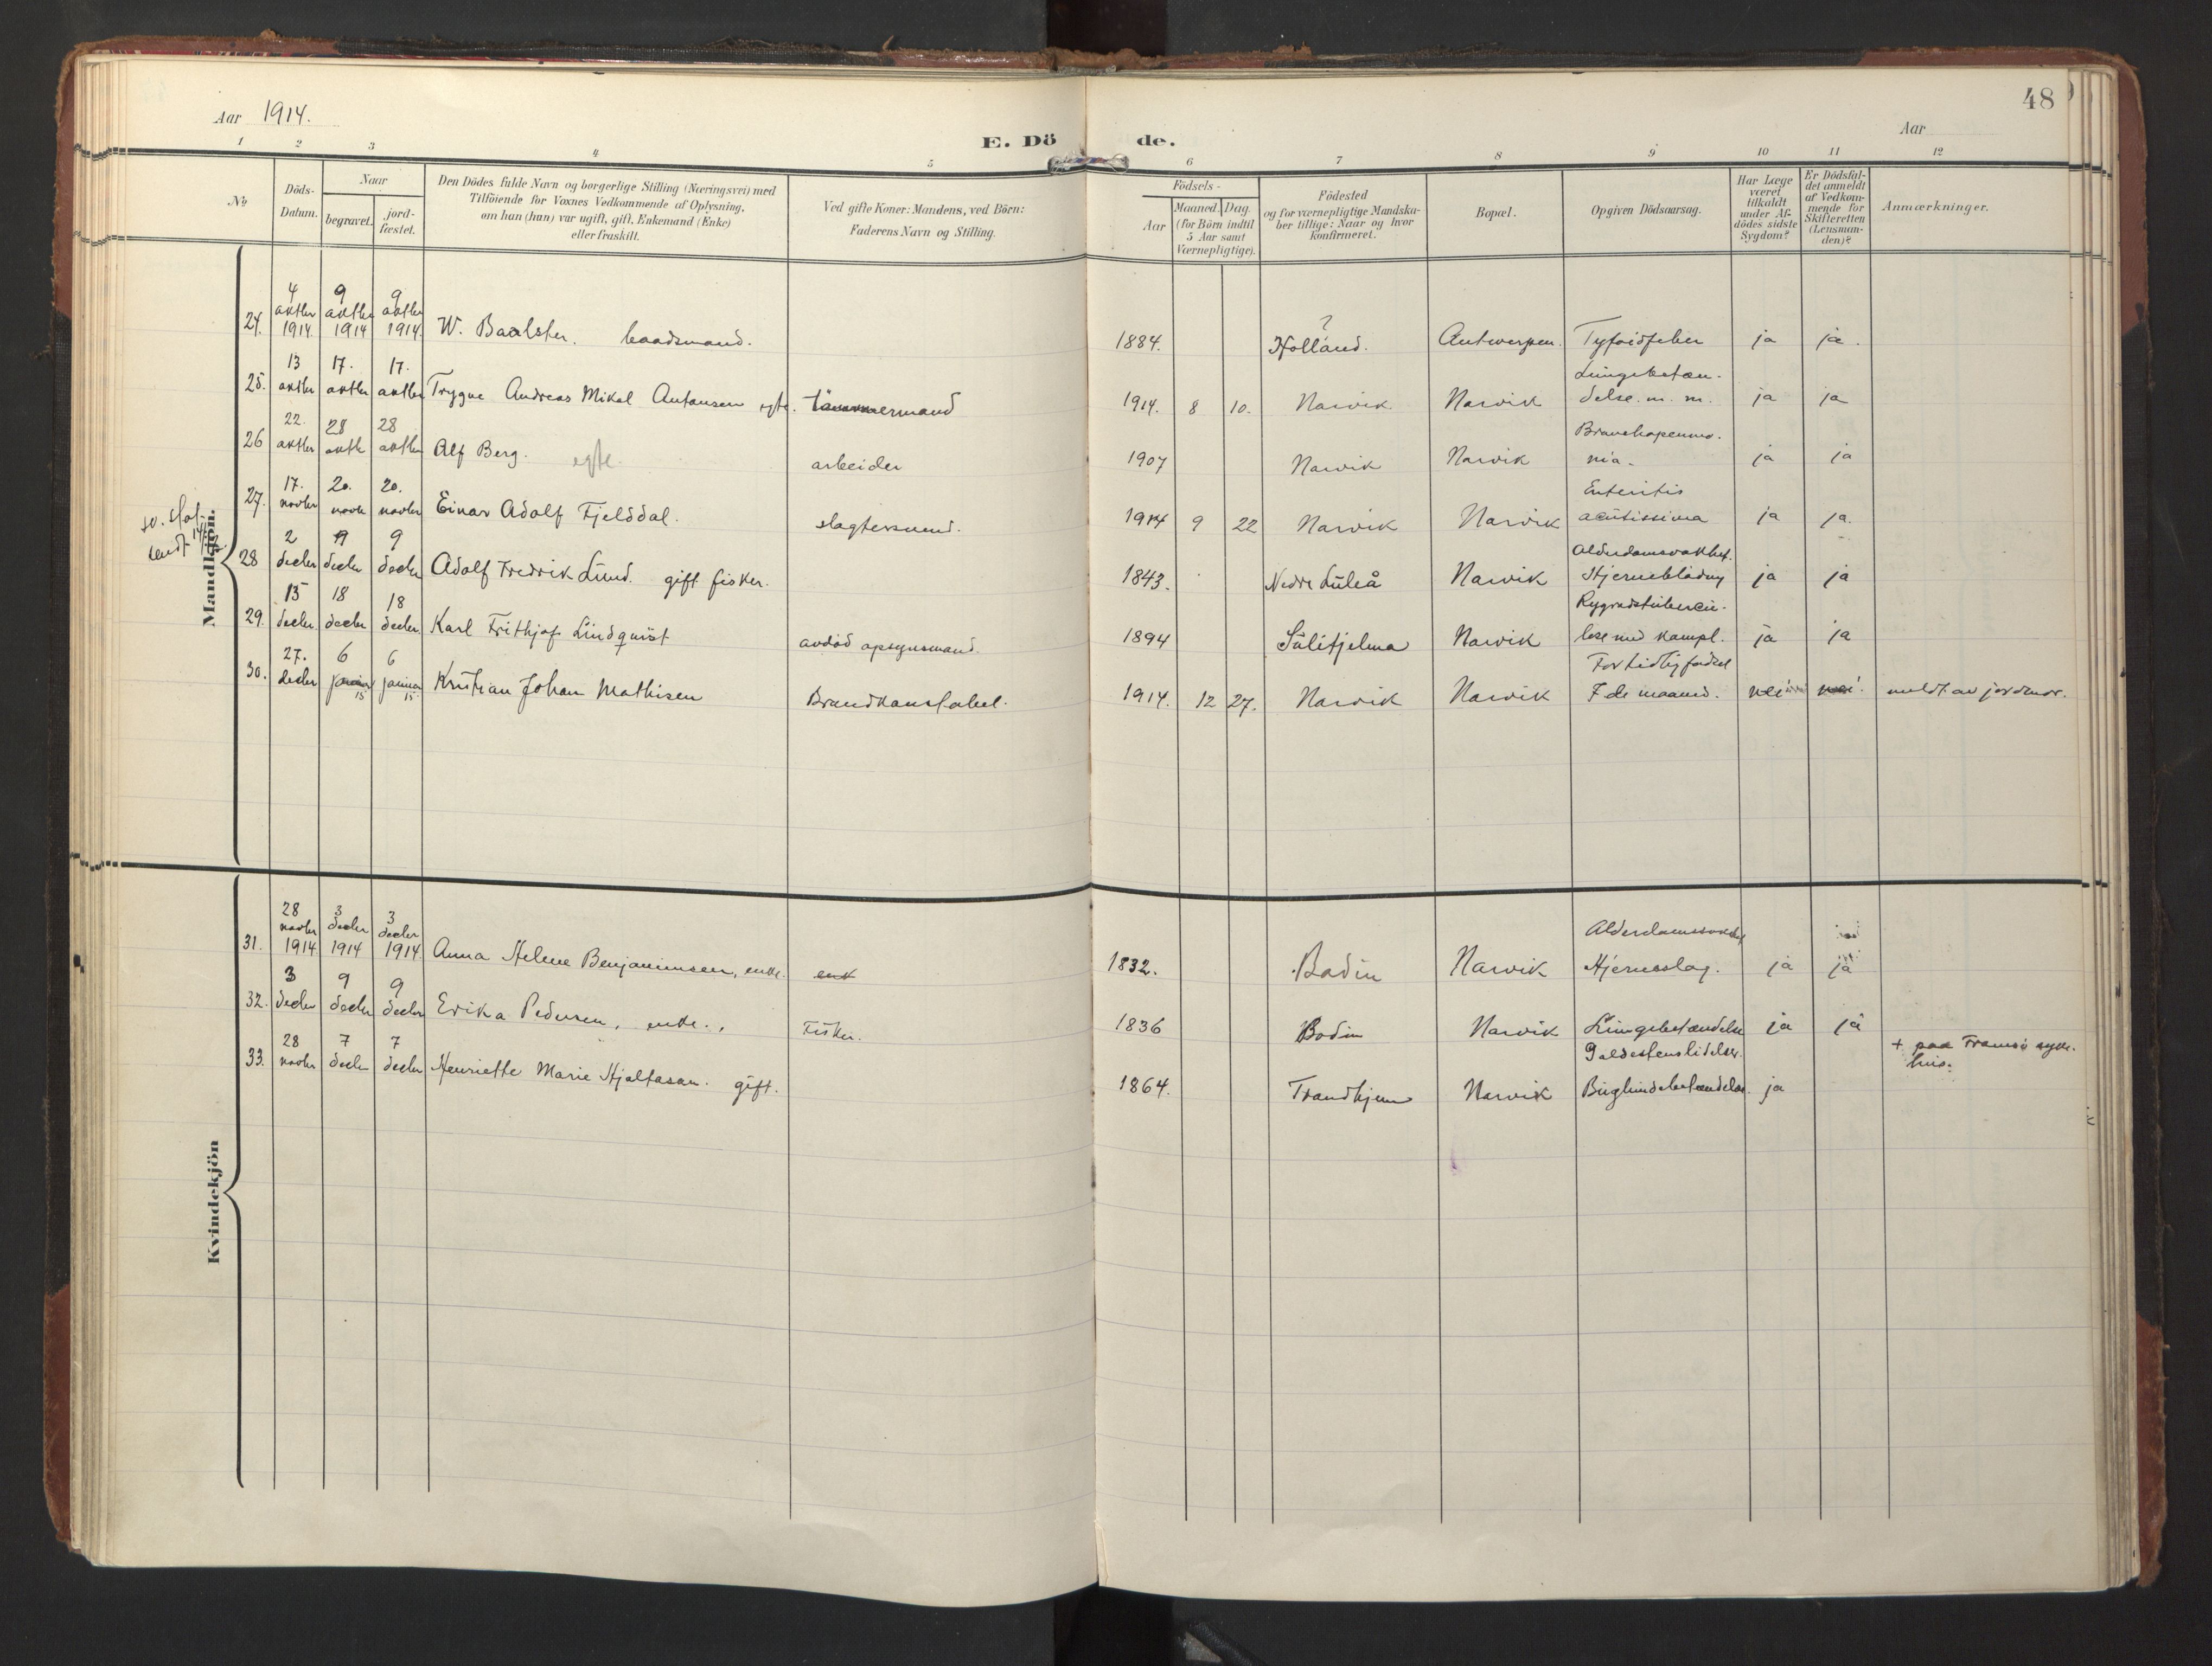 48
Aar 1914.
Aar
E. Dö de.
1 2 3 4 5 6 7 8 9 10 11 12
No
Döds-
Datum.
Naar
begravet.
jord-
fæstet.
Den Dödes fulde Navn og borgerlige Stilling (Næringsvei) med
Tilföiende for Voxnes Vedkommende af Oplysning,
om han (hun) var ugift, gift, Enkemand (Enke)
eller fraskilt.
Ved gifte Koner: Mandens, ved Börn:
Faderens Navn og Stilling.
Födsels-
Aar
Maaned.
Dag.
(for Börn indtil
5 Aar samt
Værnepligtige).
Födested
og for værnepligtige Mandska-
ber tillige: Naar og hvor
konfirmeret.
Bopæl.
Opgiven Dödsaarsag.
Har Læge
været
tilkaldt
under Af-
dödes sidste
Sygdom?
Er Dödsfal-
det anmeldt
af Vedkom-
mende for
Skifteretten
(Lensman-
den)?
Anmærkninger.
Mandkjön.
4 9 9
oktbr oktbr oktbr ?
24. 1914 1914 1914. W. Baalster. baadsmand. 1884. Holland. Antwerpen. Tyfoidfeber ja ja.
13 17. 17. Lungebetæn-
25. oktbr oktbr oktbr Trygve Andreas Mikal Antonsen egte. tömmermand 1914. 8 10. Narvik Narvik delse. m. m. ja ja
22. 28 28 Bronchopenmo-
26 oktbr oktb oktbr Alf Berg. egte. arbeider 1907 Narvik Narvik nia. ja ja
17. 20. 20. Enteritis
27. novbr novbr novbr Einar Adolf Fjelddal. slagtersvend. 1914 9 22 Narvik Narvik acutissima ja ja.
sv. stat.
sendt
2 9 9 Alderdomsvakhet.
28 decbr decbr decbr Adolf Fredrik Lund. gift fisker. 1843. Nedre Luleå Narvik Hjerneblödny ja ja
15 18 18 Rygradstubercu-
29. decbr decbr decbr Karl Frithjof Lindquist avdöd opsynsmand. 1894 Sulitjelma Narvik lose med kompl. ja ja
27. 6 6 For tidlig födsel
30. decbr januar 15 januar 15. Kristian Johan Mathisen Brandkonstabel. 1914. 12 27. Narvik Narvik 7de maaned. nei nei. meldt av jordmor.
Kvindekjön
28 3 3
novbr decbr decbr Alderdomssvakhet
31. 1914 1914 1914. Anna Helene Benjaminsen, enke. enk 1832. Bodin Narvik Hjerneslag. ja ja
3 9 9
32. decbr decbr decbr Erika Pedersen, enke., Fisker. 1836 Bodin Narvik Lungebetændelse ja ja
28 7 7 Galdestenslidelser. + paa Tromsö syke-
hus.
33. novbr decbr decbr Henriette Marie Hjaltason. gift. 1864. Trondhjem Narvik Bughindebetændelse. ja